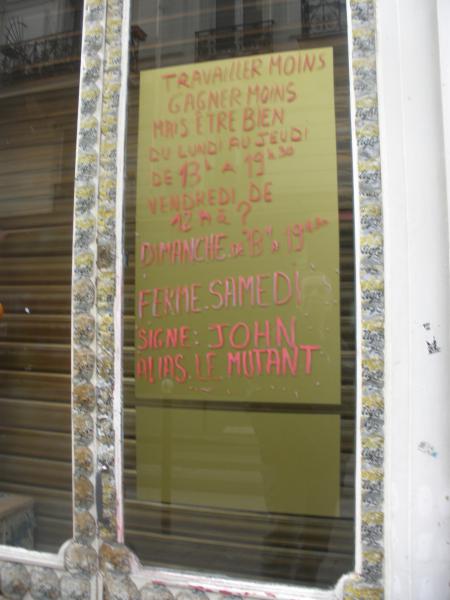 TRAVAILLER MOINS
GAGNER MOINS
MAIS ÊTRE BIEN
DU LUNDI AU JEUDI
DE 13h A 19h30
VENDREDI DE
12 H à ?
DIMANCHE. DE 13h à 19h30
FERME. SAMEDI
SIGNE: JOHN
ALIAS. LE MUTANT